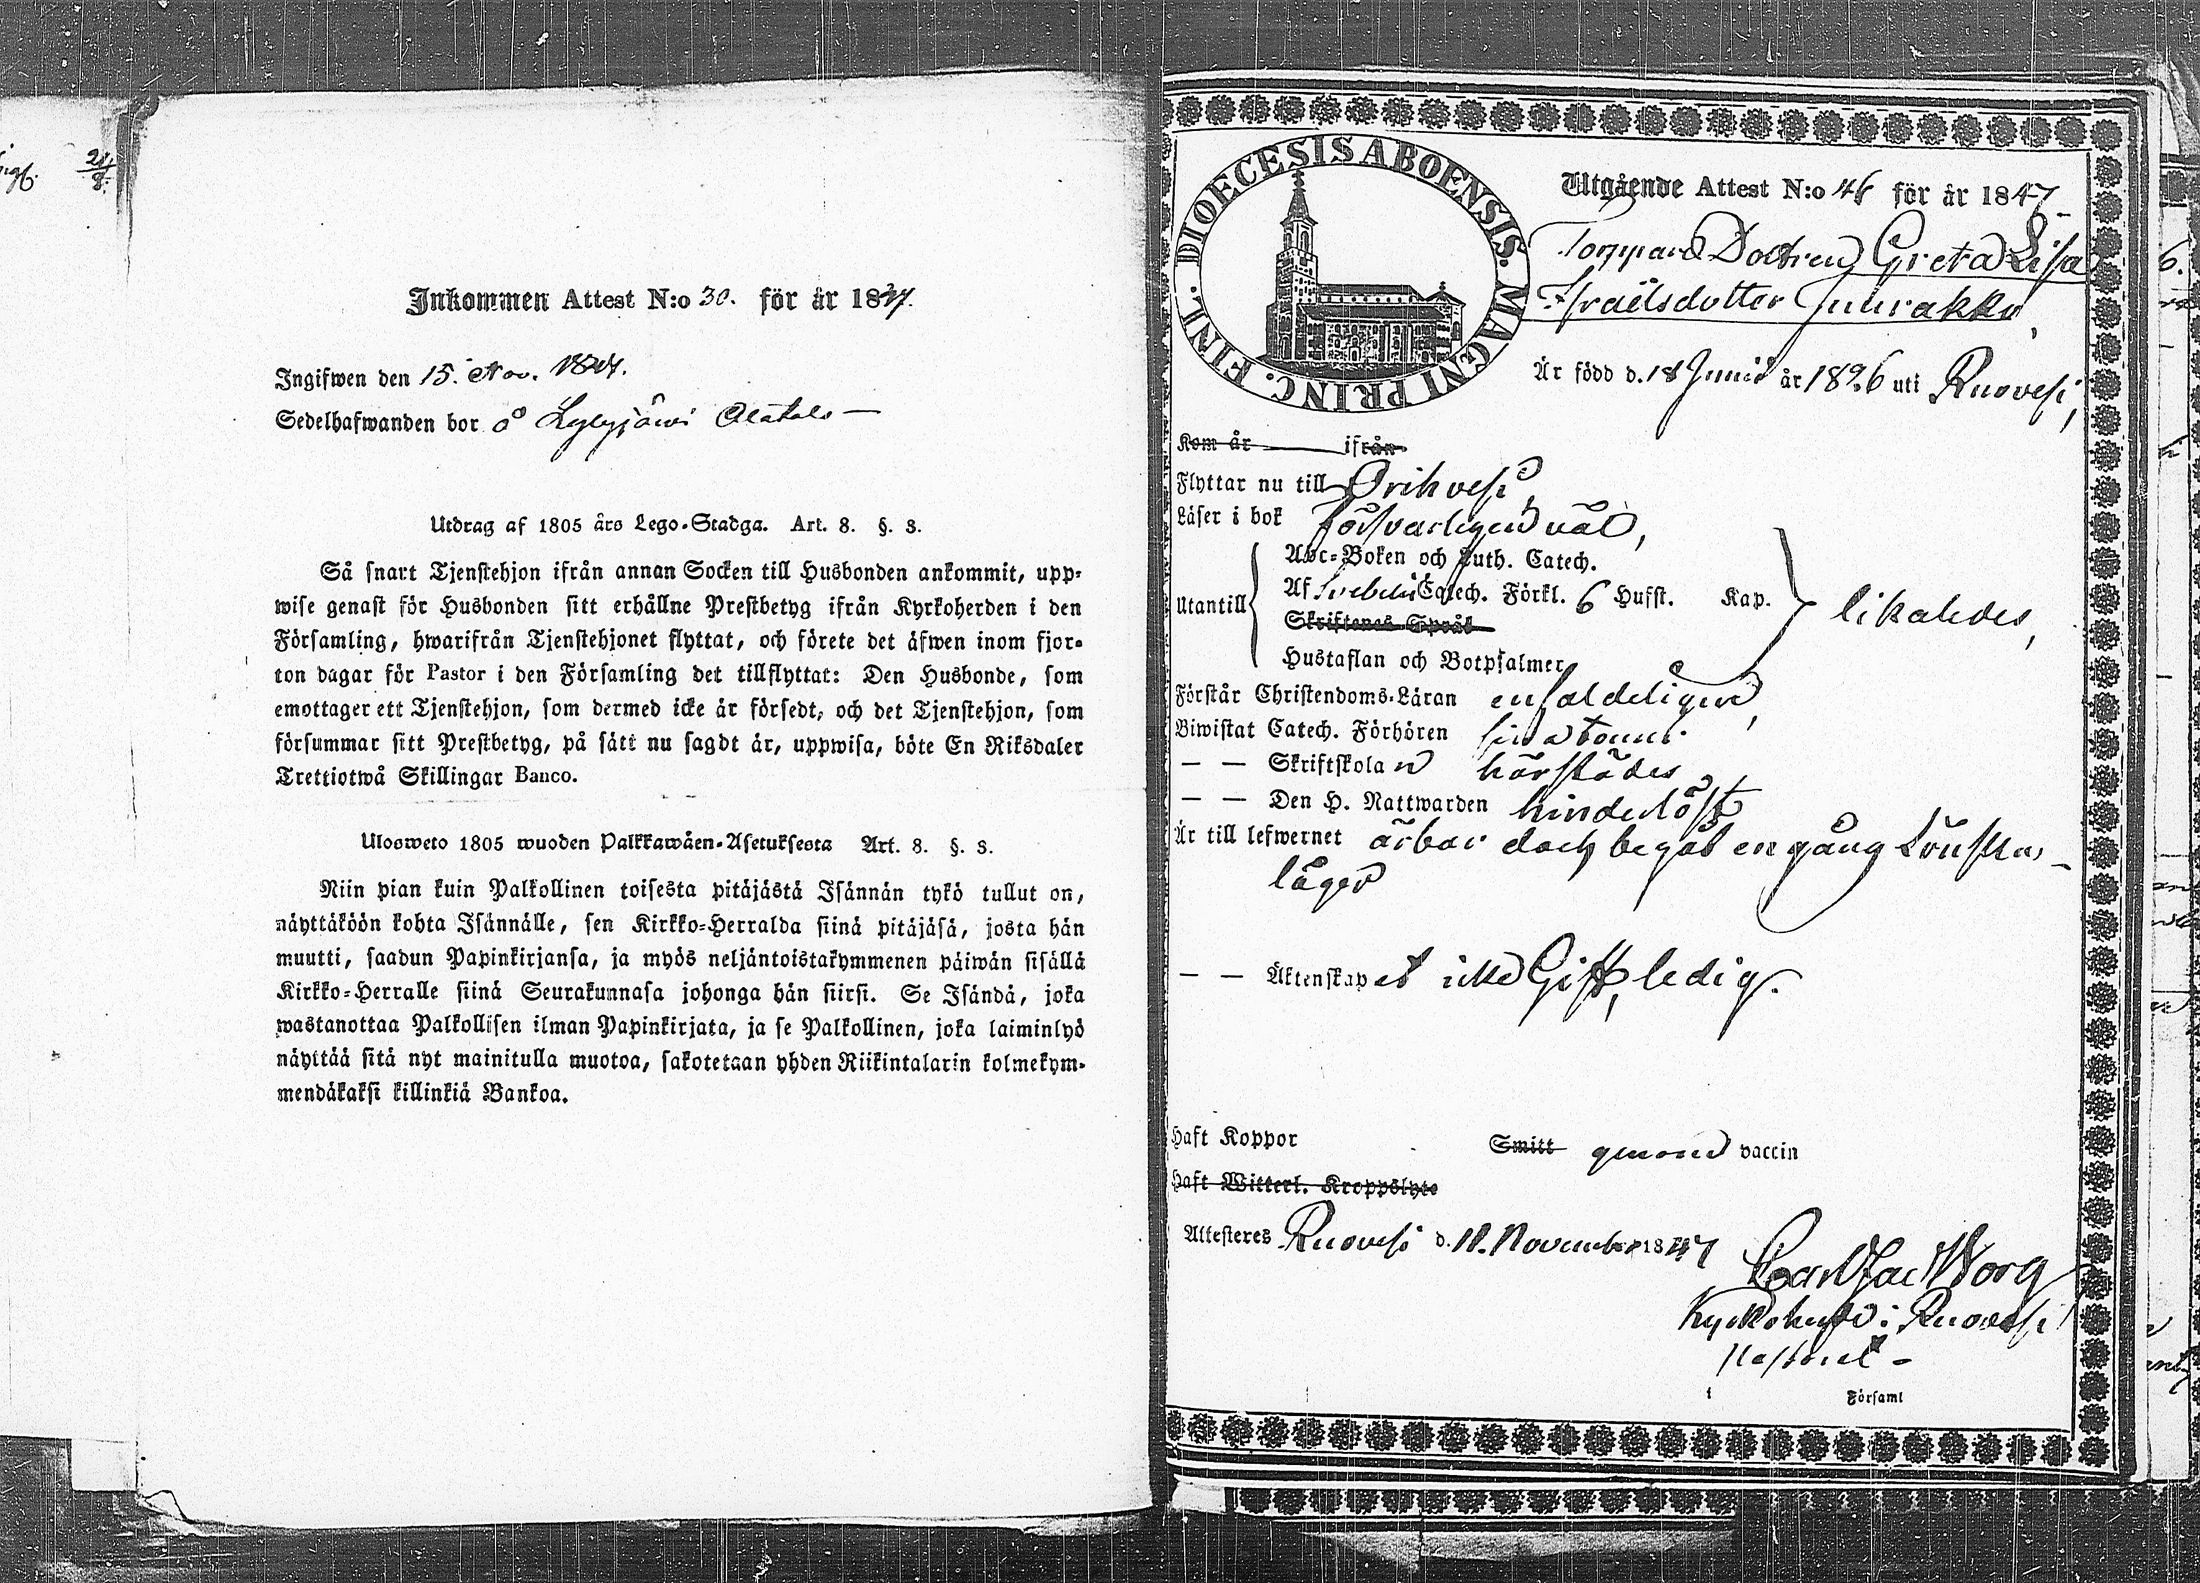 Inkommen Attest N:o 30. för år 1847.
Ingifwen den 15. Nov. 1847.
Sedelhafwanden bor å Lylyjäwi Alatalo —
Utdrag af 1805 års Lego-Stadga. Art. 8. §. 8.
Så snart Tjenstehjon ifrån annan Socken till Husbonden ankommit, upp-
wise genast för Husbonden sitt erhållne Prestbetyg ifrån Kyrkoherden i den
Församling, hwarifrån Tjenstehjonet flyttat, och förete det äfwen inom fjor-
ton dagar för Pastor i den Församling det tillflyttat: Den Husbonde, som
emottager ett Tjenstehjon, som dermed icke är försedt, och det Tjenstehjon, som
försummar sitt Prestbetyg, på sätt nu sagdt är, uppwisa, böte En Riksdaler
Trettiotwå Skillingar Banco.
Ulosweto 1805 wuoden Palkkawäen-Asetuksesta Art. 8. §. 8.
Niin pian kuin Palkollinen toisesta pitäjästä Isännän tykö tullut on,
näyttäköön kohta Isännälle, sen Kirkko-Herralda siinä pitäjäsä, josta hän
muutti, saadun Papinkirjansa, ja myös neljäntoistakymmenen päiwän sisällä
Kirkko-Herralle siinä Seurakunnasa johonga hän siirsi. Se Isändä, joka
wastanottaa Palkollisen ilman Papinkirjata, ja se Palkollinen, joka laiminlyö
näyttää sitä nyt mainitulla muotoa, sakotetaan yhden Riikintalarin kolmekym-
mendäkaksi killinkiä Bankoa.
DIOECESIS ABOENSIS. MAGNI PRINC. FINL.
Utgående Attest N:o 46 för år 1847
Torppare Dottren Greta Lisa
Israëlsdotter Juurakko,
Är född d. 18 Junii år 1826 uti Ruovesi,
Kom år ifrån
Flyttar nu till Orihvesi,
Läser i bok försvarligen väl,
Abc-Boken och Luth. Catech.
Utantill Af Svebelii Catech. Förkl. 6 Hufst. Kap. likaledes,
Skriftenes Språk
Hustaflan och Botpsalmer
Förstår Christendoms-Läran enfaldeligen,
Biwistat Catech. Förhören
— — Skriftskolan härstädes
— — Den H. Nattwarden hinderlöst
Är till lefwernet ärbar doch begåt en gång Lönska
läger
— — Äktenskapet icke Gift, ledig.
Haft Koppor Smitt genom vaccin
Haft Witterl. Kroppslyte
Attesteres Ruovesi d. 11. November 1847
Carl Jac Worg
Kyrkoherde i Ruovesi
Pastorat –
i Församl